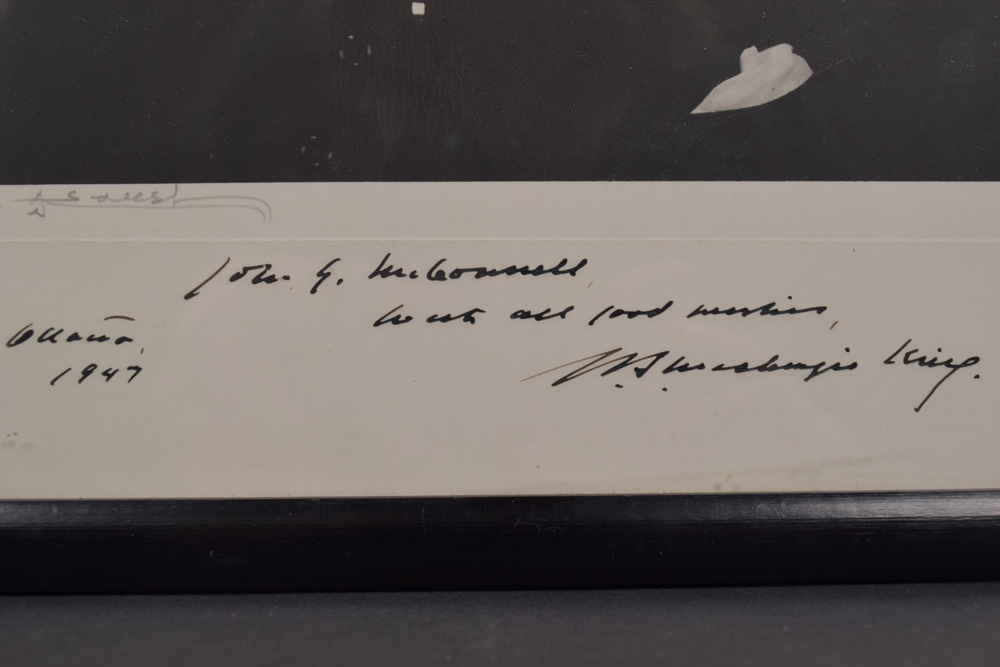 John G. McConnell,
With all good wishes,
Ottawa,
1947
W. L. Mackenzie King.